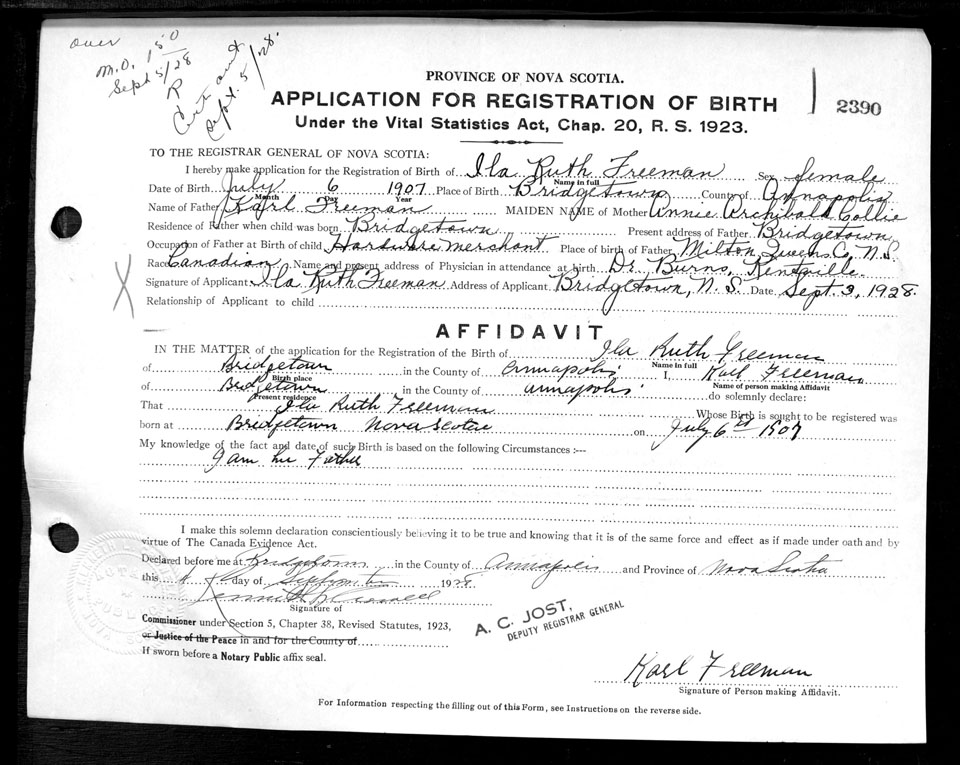 over
M.O. 1 50
Sept 5/28
R
Cert sent
Sept. 5/28.
PROVINCE OF NOVA SCOTIA.
APPLICATION FOR REGISTRATION OF BIRTH
2390
Under the Vital Statistics Act, Chap. 20, R. S. 1923.
TO THE REGISTRAR GENERAL OF NOVA SCOTIA:
I hereby make application for the Registration of Birth of Ila Ruth Freeman Sex female
Name in full
Date of Birth July 6 1907 Place of Birth Bridgetown County of Annapolis
Month Day Year
Name of Father Karl Freeman MAIDEN NAME of Mother Annie Archibald Collie
Residence of Father when child was born Bridgetown Present address of Father Bridgetown
Occupation of Father at Birth of child Hardware merchant Place of birth of Father Milton, Queens Co, N.S.
Race Canadian Name and present address of Physician in attendance at birth Dr Burns, Kentville
Signature of Applicant Ila Ruth Freeman Address of Applicant Bridgetown, N. S. Date Sept. 3, 1928.
Relationship of Applicant to child
X
AFFIDAVIT
IN THE MATTER of the application for the Registration of the Birth of Ila Ruth Freeman
Name in full
of Bridgetown in the County of Annapolis I, Karl Freeman
Birth place Name of person making Affidavit
of Bridgetown in the County of Annapolis do solemnly declare:
Present residence
That Ila Ruth Freeman Whose Birth is sought to be registered was
born at Bridgetown Nova Scotia on July 6th 1907
My knowledge of the fact and date of such Birth is based on the following Circumstances :—
I am her Father
I make this solemn declaration conscientiously believing it to be true and knowing that it is of the same force and effect as if made under oath and by
virtue of The Canada Evidence Act.
Declared before me at Bridgetown in the County of Annapolis and Province of Nova Scotia
this 4th day of September 1928
Signature of
Commissioner under Section 5, Chapter 38, Revised Statutes, 1923,
or Justice of the Peace in and for the County of
If sworn before a Notary Public affix seal.
A. C. JOST,
DEPUTY REGISTRAR GENERAL
Karl Freeman
Signature of Person making Affidavit.
For Information respecting the filling out of this Form, see Instructions on the reverse side.